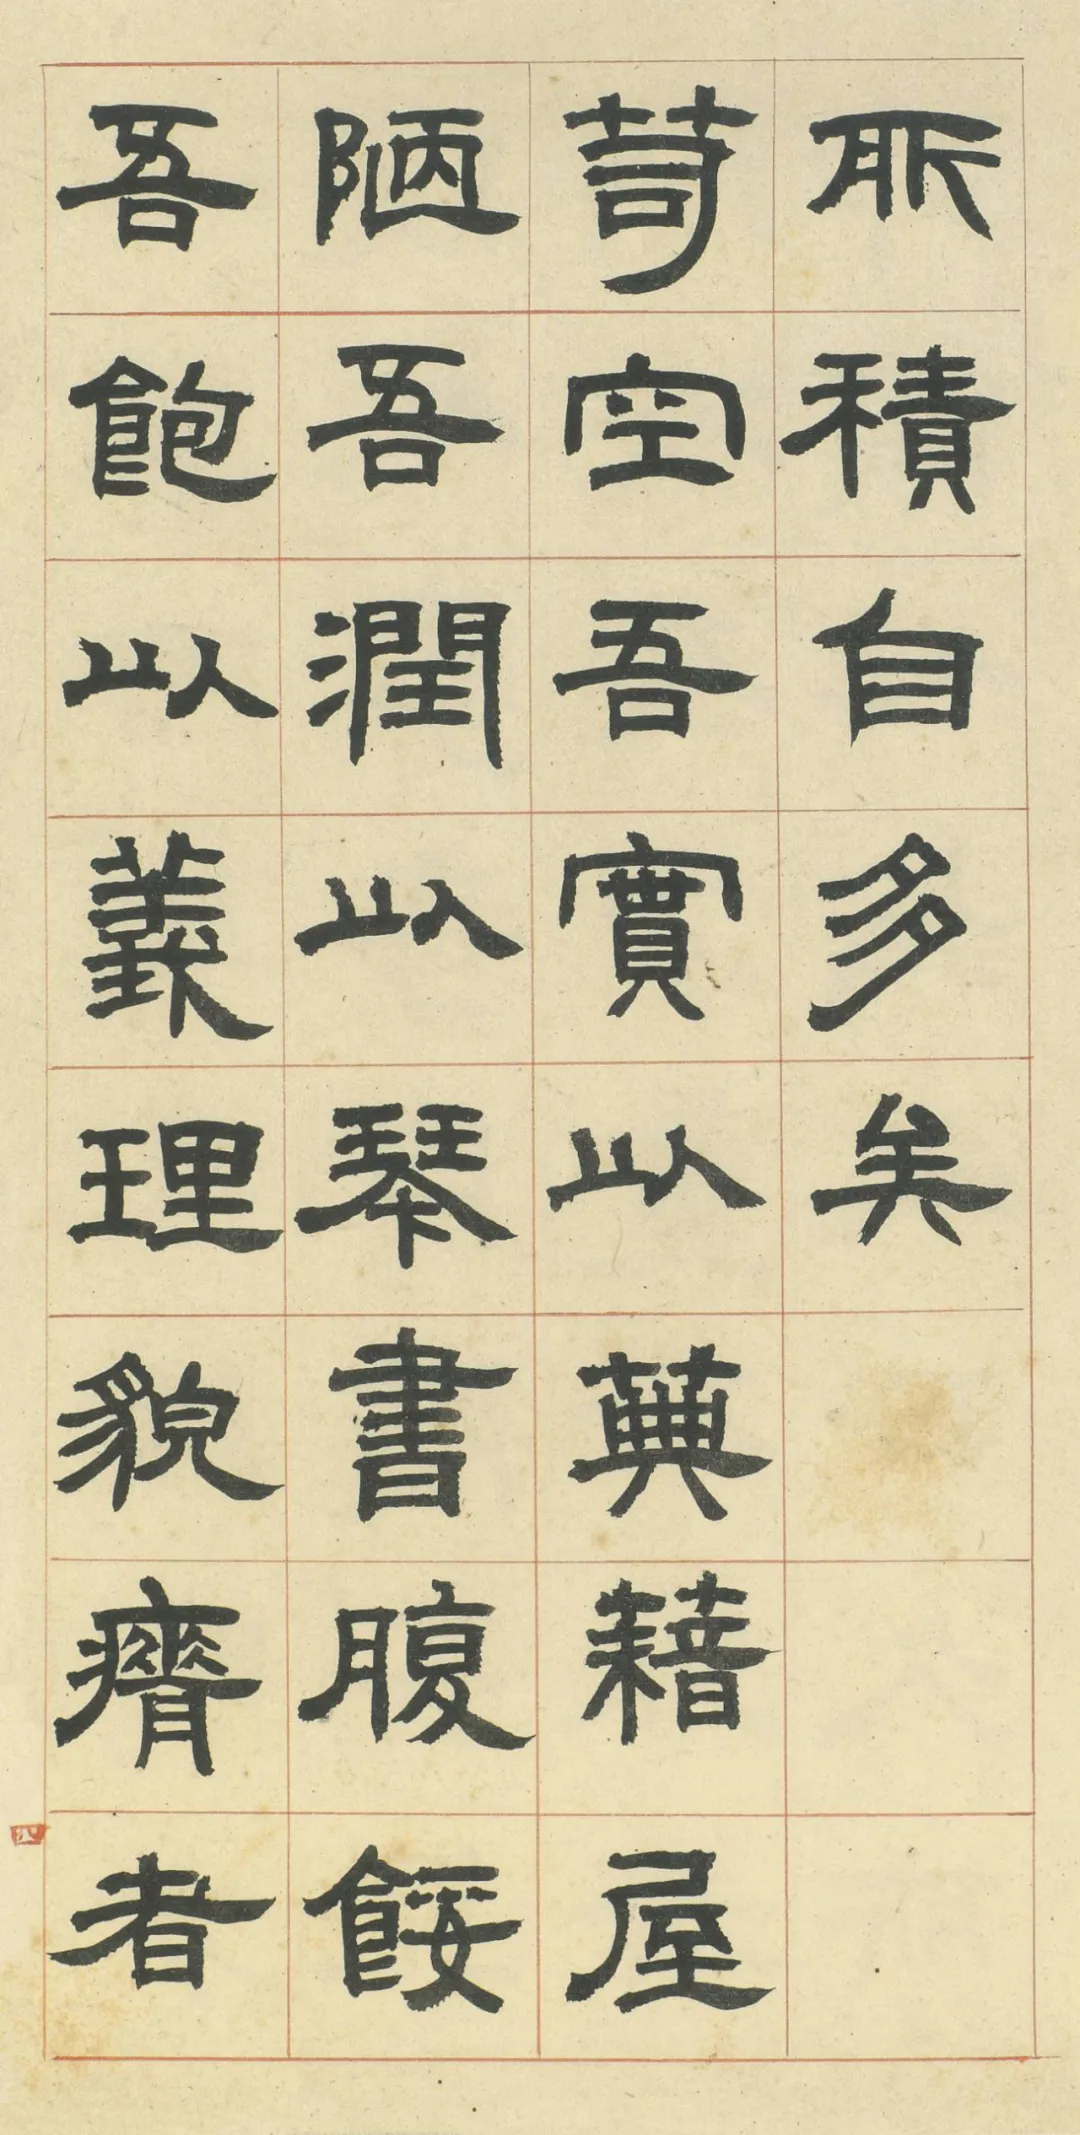 所積自多矣
苛空吾實以典籍屋
陋吾潤以琴書腹
餒吾飽以義理貌
瘠者